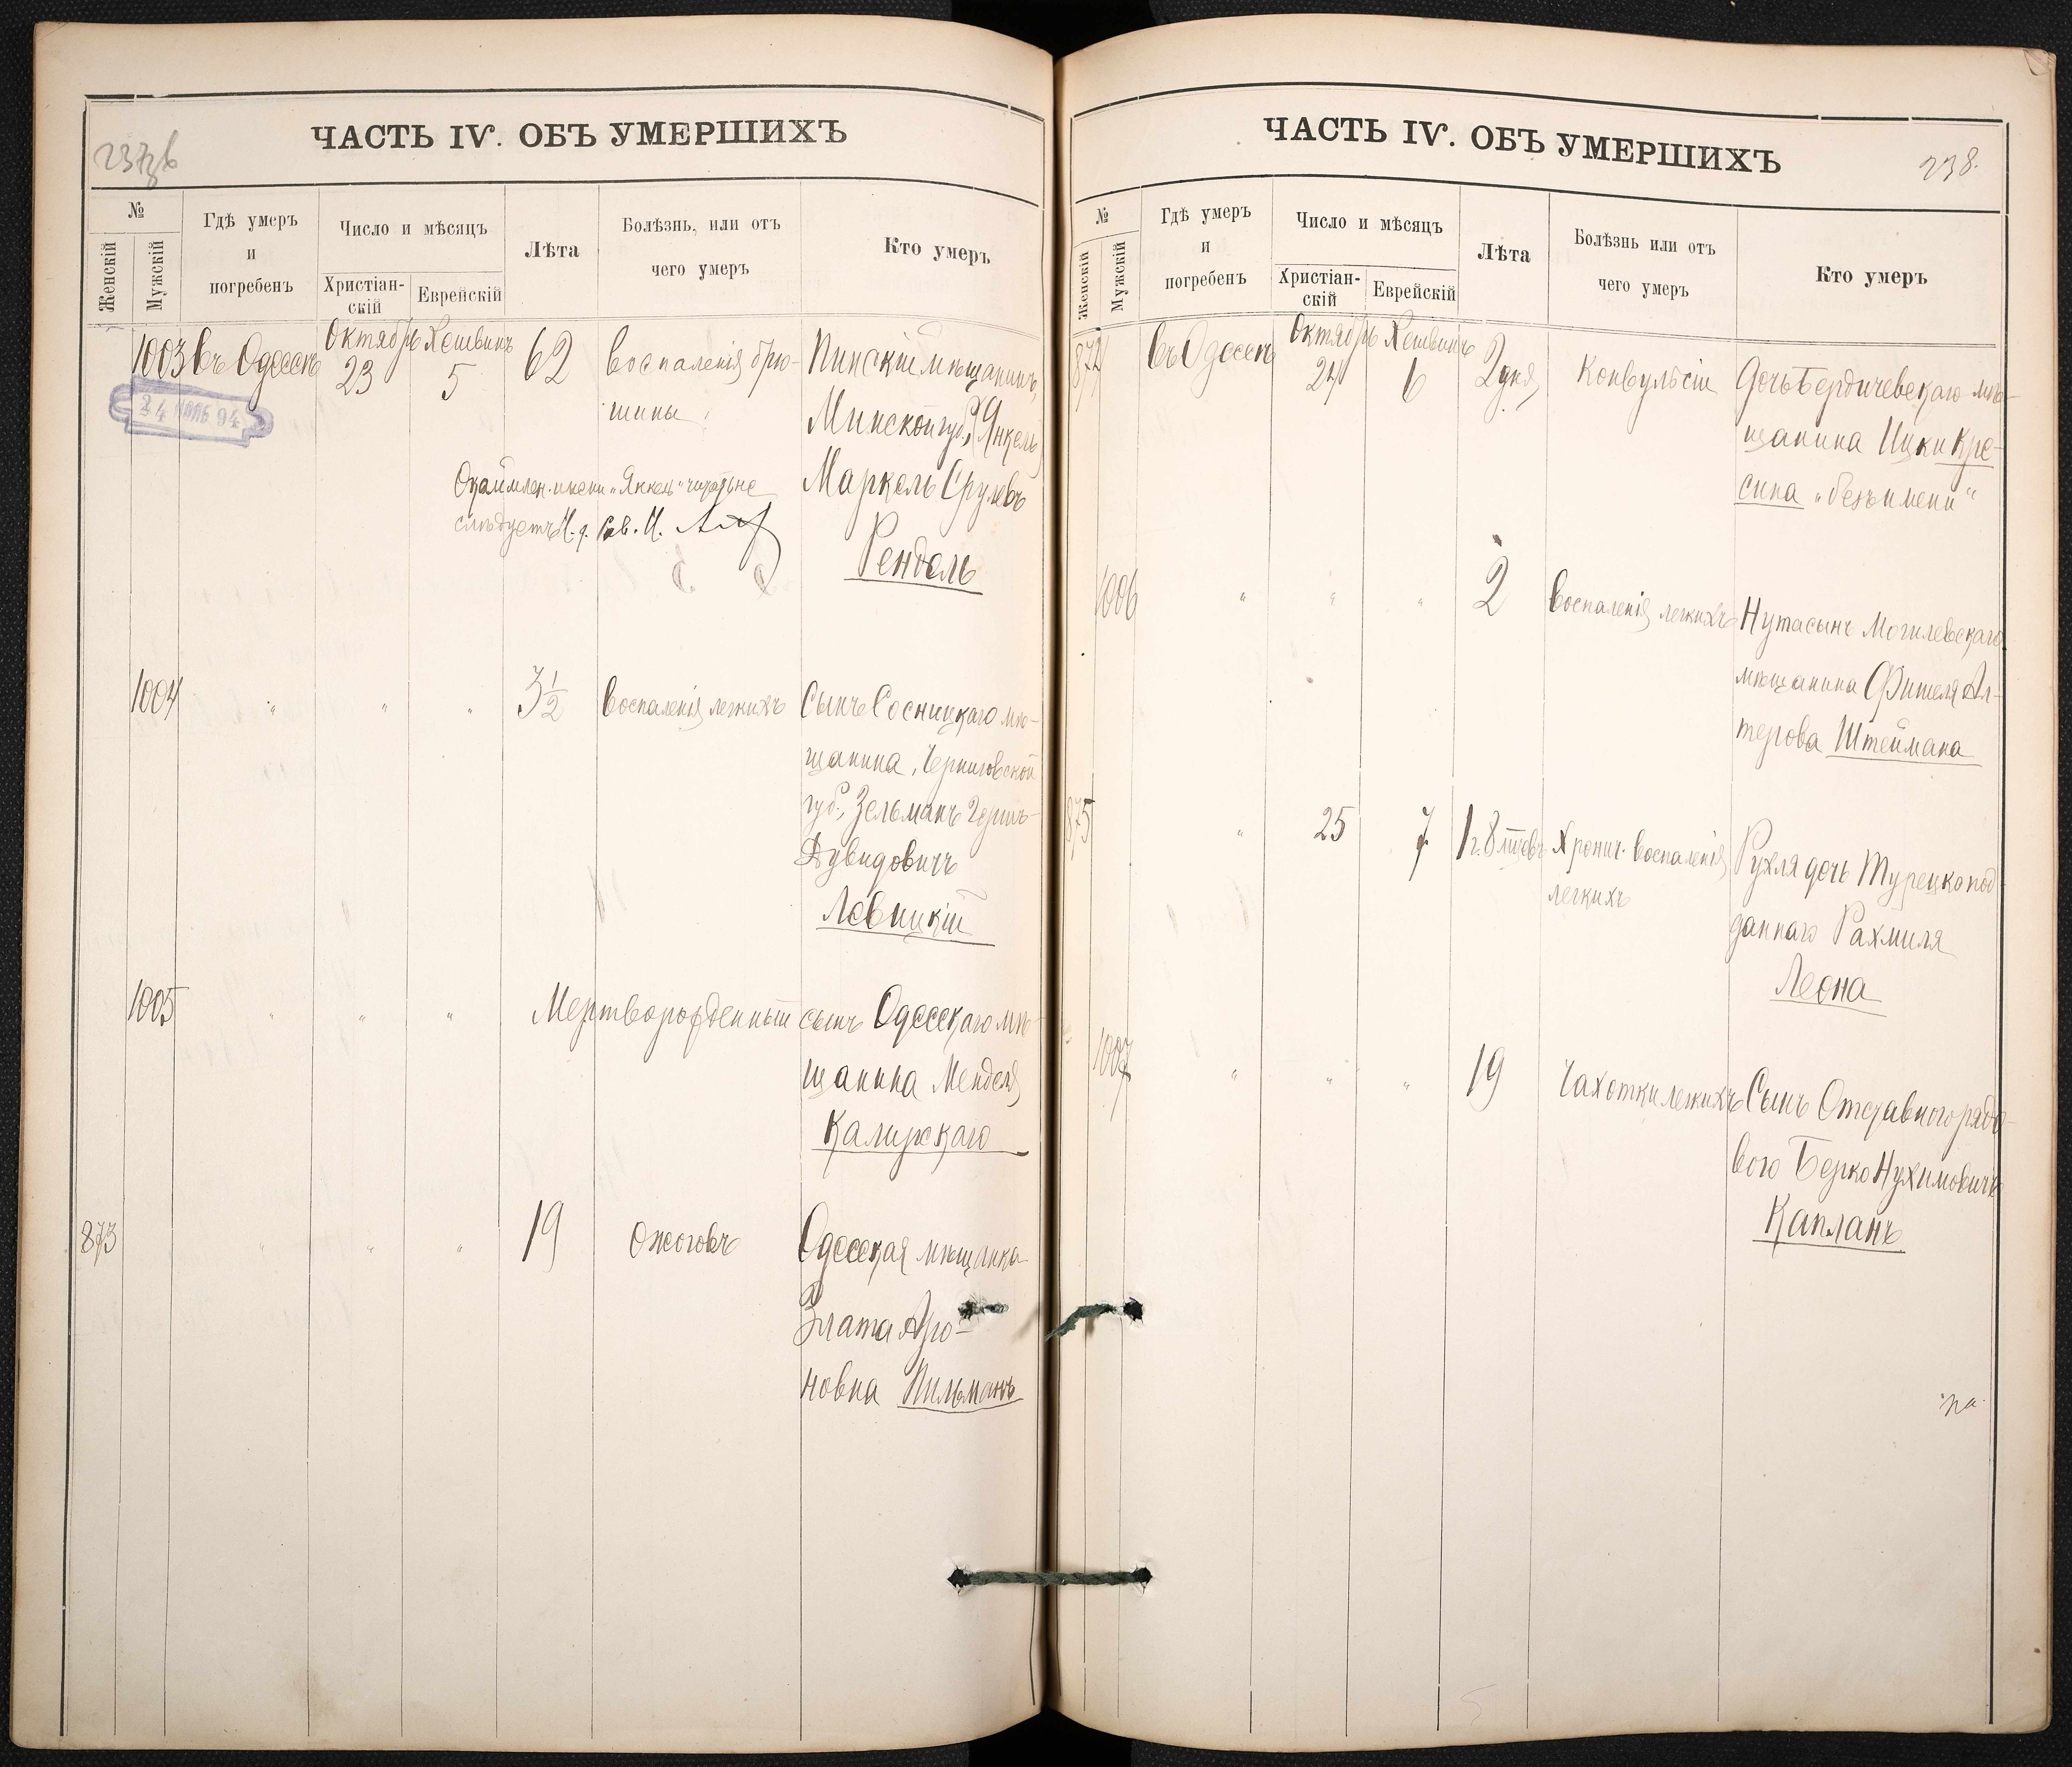 237 об
ЧАСТЬ IV. ОБЪ УМЕРШИХЪ
№
Женскій
Мужскій
Гдѣ умеръ
и
погребенъ
Число и мѣсяцъ
Христіан-
скій
Еврейскій
Лѣта
Болѣзнь, или отъ
чего умеръ
Кто умеръ
1003 въ Одессѣ Октябрь 23 Хешвинъ 5 62 воспаленія брю-
шины
Пинскій мѣщанинъ,
Минской губ., (Янкель)
Маркель Срулевъ
Рендель
24 94
имени „Янкель“ читать не
слѣдуетъ И. д. И.
1004 " " " 3½ воспаленія легкихъ Сынъ Сосницкаго мѣ-
щанина, Черниговской
губ., Зельманъ Герш-
Дувидовичъ
Левицкій
1005 " " " Мертворожденный сынъ Одесскаго мѣ-
щанина Менделя
Калужскаго
873 " " " 19 Ожоговъ Одесская мѣщанка
Злата Аро-
новна Пильманъ
238.
ЧАСТЬ IV. ОБЪ УМЕРШИХЪ
№
Женскій
Мужскій
Гдѣ умеръ
и
погребенъ
Число и мѣсяцъ
Христіан-
скій
Еврейскій
Лѣта
Болѣзнь или отъ
чего умеръ
Кто умеръ
874 въ Одессѣ Октябрь 24 Хешвинъ 6 2 дня Конвульсіи Дочь Бердичевскаго мѣ-
щанина Ицки Кре-
сина „безъ имени“
1006 " " " 2 воспаленія легкихъ Нута сынъ Могилевскаго
мѣщанина Фишеля Ал-
терова Штеймана
875 " 25 7 1 г. 8 мѣсев. Хронич. воспаленія
легкихъ
Рухля дочь Турецкопод-
даннаго Рахмиля
Леона
1007 " " " 19 Чахотки легкихъ Сынъ Отставного рядо-
вого Берко Нухимовичъ
Капланъ